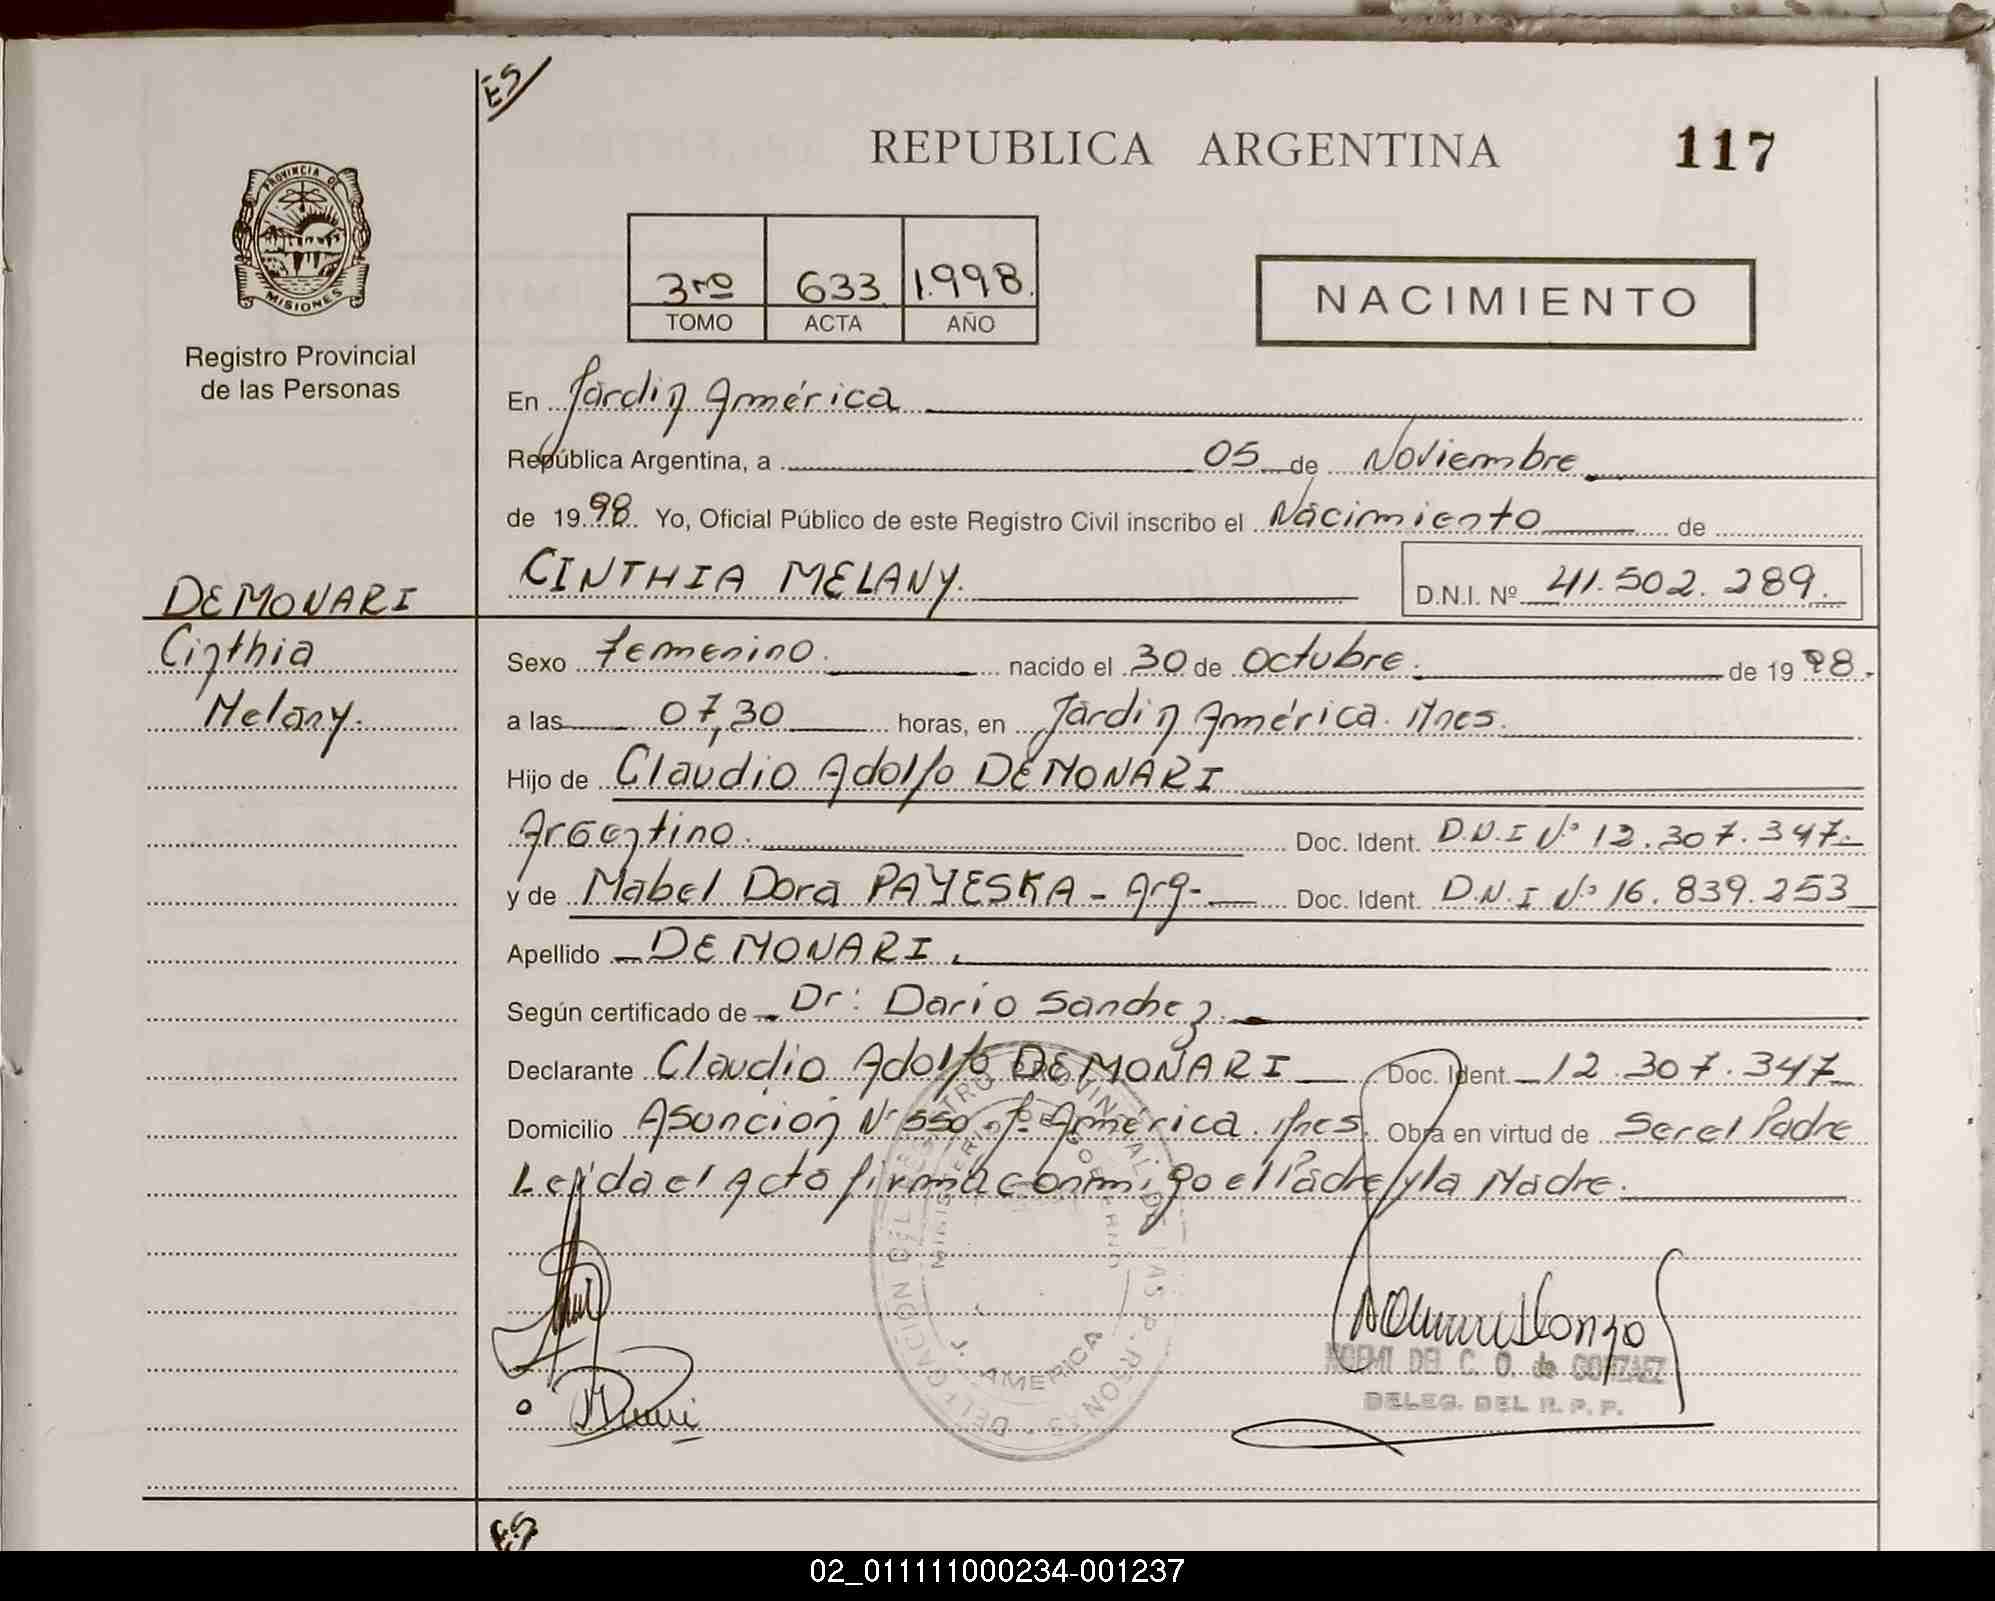 ES
REPUBLICA ARGENTINA
117
PROVINCIA DE
MISIONES
Registro Provincial
de las Personas
3ro 633 1.998.
TOMO ACTA AÑO
NACIMIENTO
En Jardin América
República Argentina, a 05 de Noviembre
de 1998 Yo, Oficial Público de este Registro Civil inscribo el Nacimiento de
CINTHIA MELANY. D.N.I. Nº 41.502.289.
DEMONARI
Cinthia
Melany.
Sexo Femenino. nacido el 30 de Octubre. de 1998.
a las 07,30 horas, en Jardin América. Mnes.
Hijo de Claudio Adolfo DEMONARI
Argentino. Doc. Ident. D.N.I Nº 12.307.347.
y de Mabel Dora PAYESKA - Arg- Doc. Ident. D.N.I Nº 16.839.253
Apellido DEMONARI.
Según certificado de Dr: Dario Sanchez.
Declarante Claudio Adolfo DEMONARI Doc. Ident. 12.307.347
Domicilio Asunción Nº 550 J. América. Mnes. Obra en virtud de Ser el Padre
Leida el Acta firma conmigo el Padre y la Madre.
DELEGACIÓN DEL REGISTRO PROVINCIAL DE LAS PERSONAS
MINISTERIO DE GOBIERNO
J. AMERICA
NOEMI DEL C. O. de GONZALEZ
DELEG. DEL R. P. P.
ES
02_011111000234-001237